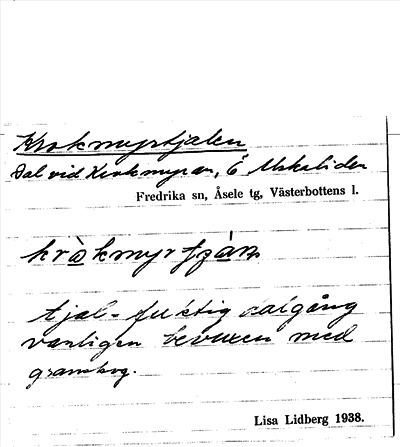 Krokmyrtjalen
Dal vid Krokmyran, Ö Uskaliden
Fredrika sn, Åsele tg, Västerbottens l.
tjal = fuktig dalgång
vanligen bevuxen med
granskog.
Lisa Lidberg 1938.